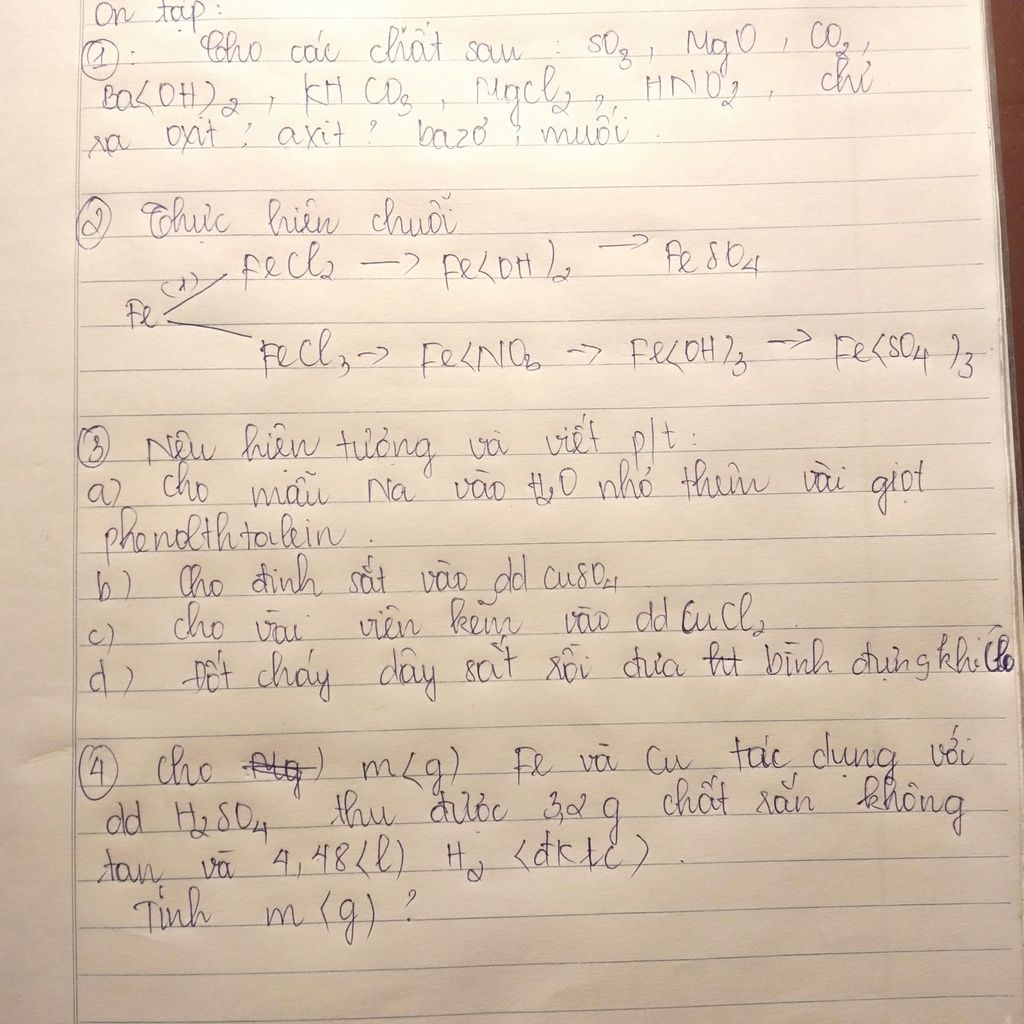 Ôn tập:
①: Cho các chất sau: SO₃, MgO, CO₂,
Ba(OH)₂, KHCO₃, MgCl₂, HNO₂, chỉ
ra oxit? axit? bazơ? muối.
② Thực hiện chuỗi
FeCl₂ → Fe(OH)₂ → FeSO₄
Fe (1)
FeCl₃ → Fe(NO₃ → Fe(OH)₃ → Fe(SO₄)₃
③ Nêu hiện tượng và viết p/t:
a) Cho mẫu Na vào H₂O nhỏ thêm vài giọt
phenolthtalein.
b) Cho đinh sắt vào dd CuSO₄
c) cho vài viên kẽm vào dd CuCl₂
d) Đốt cháy dây sắt rồi đưa bình đựng khí Clo
④ Cho m(g) Fe và Cu tác dụng với
dd H₂SO₄ thu được 3,2 g chất rắn không
tan và 4,48(l) H₂ (đktc).
Tính m(g)?